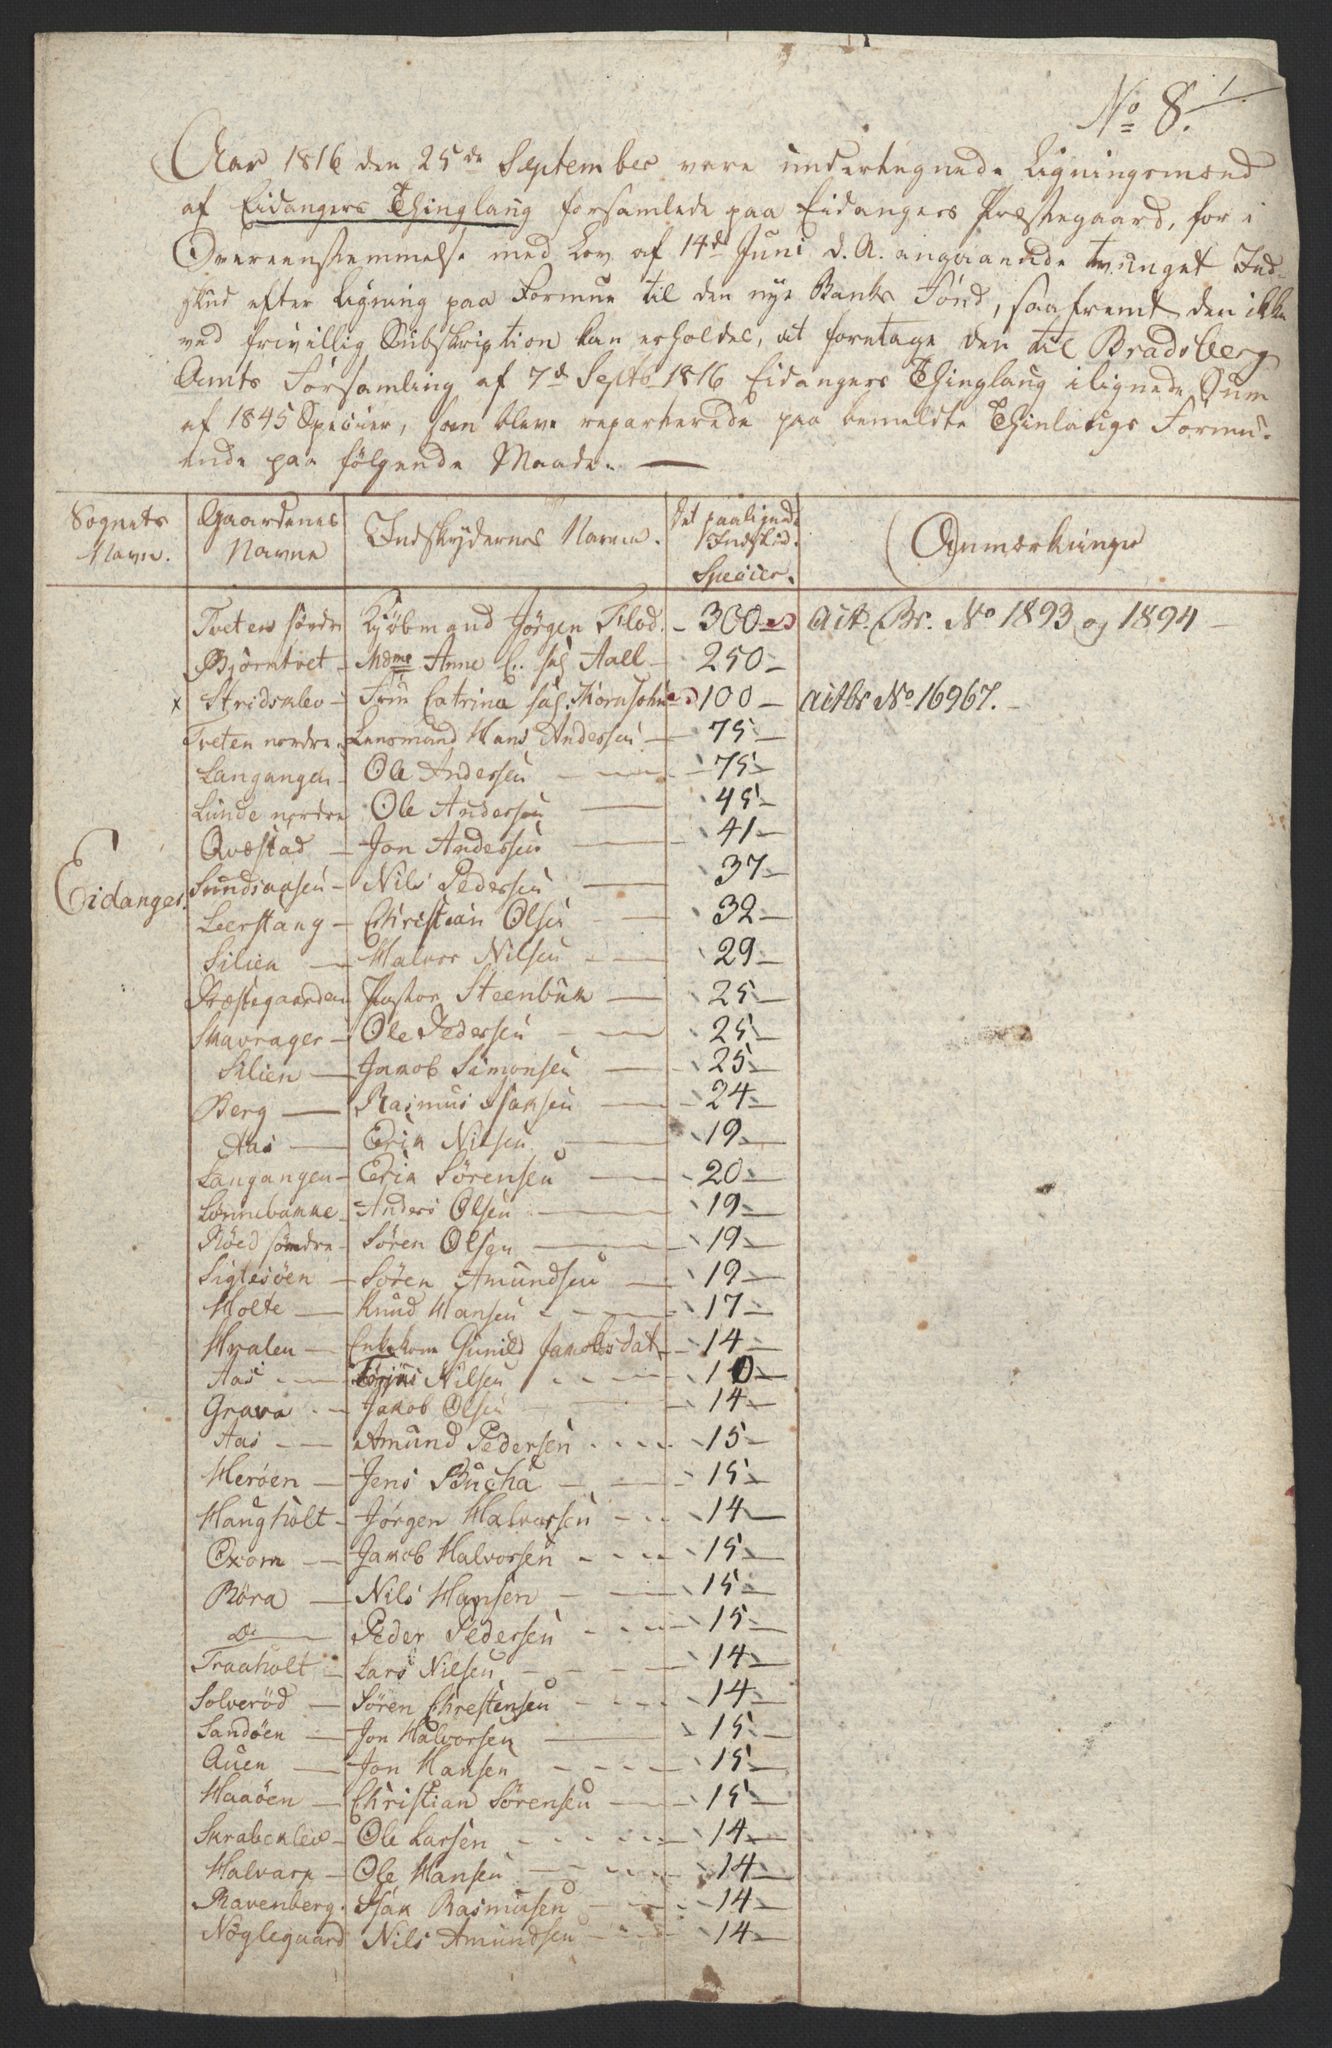 No 8.
Aar 1816 den 25de September vare undertegnede Ligningsmænd
af Eidangers Thinglaug forsamlede paa Eidangers Præstegaard, for i
Overeenstemmelse med Lov af 14de Juni d. A. angaaende tvunget Ind-
skud efter Ligning paa Formue til den nye Banks Fond, saafremt den ikke
ved frivillig Subskription kan erholdes, at foretage den til Bradsberg
Amts Forsamling af 7de Septb 1816 Eidangers Thinglaug ilignede Sum
af 1845 Specier, som bleve reparterede paa bemeldte Thinlaugs Formu-
ende paa følgende Maade.
Sognets Navn. Gaardenes Navne Indskydernes Navne. Det paalignede Indskud. Specier. Anmærkninger
Eidanger.
Tveten søndre Kjøbmand Jørgen Flod. 300 Act. Br. No 1893 og 1894
Bjørntvet Mdme Anne C. sal Aall 250
x Stridsklev Frue Catrina sal. 100 actbr No 16967.
Tveten nordre Lensmand Hans Andersen 75
Langangen Ole Andersen 75
Lunde nordre Ole Andersen 45
Qvæstad Jon Andersen 41
Sundsaasen Nils Pedersen 37
Leerstang Christian Olsen 32
Silien Halvor Nilsen 29
Præstegaarden Pastor Steenbuk 25
Skavrager Ole Pedersen 25
Silien Jakob Simonsen 25
Berg Rasmus Isaksen 24
Aas Erik Nilsen 19
Langangen Erik Sørensen 20
Lønnebakke Anders Olsen 19
Røed søndre Søren Olsen 19
Sigtesøen Søren Amundsen 19
Holte Knud Hansen 17
Hvalen Enkekone Gunild Jakobsdat 14
Aas Torjus Nilsen 10
Grava Jakob Olsen 14
Aas Amund Pedersen 15
Herøen Jens Bucha 15
Haugholt Jørgen Halvorsen 14
Oxom Jakob Halvorsen 15
Røra Nils Hansen 15
Do Peder Pedersen 15
Traaholt Lars Nilsen 14
Solverød Søren Christensen 14
Sandøen Jon Halvorsen 15
Auen Jon Hansen 15
Haaøen Christian Sørensen 15
Skrabeklev Ole Larsen 14
Halvarp Ole Hansen 14
Ravenberg. Isak Rasmusen 14
Nøglegaard Nils Amundsen 14